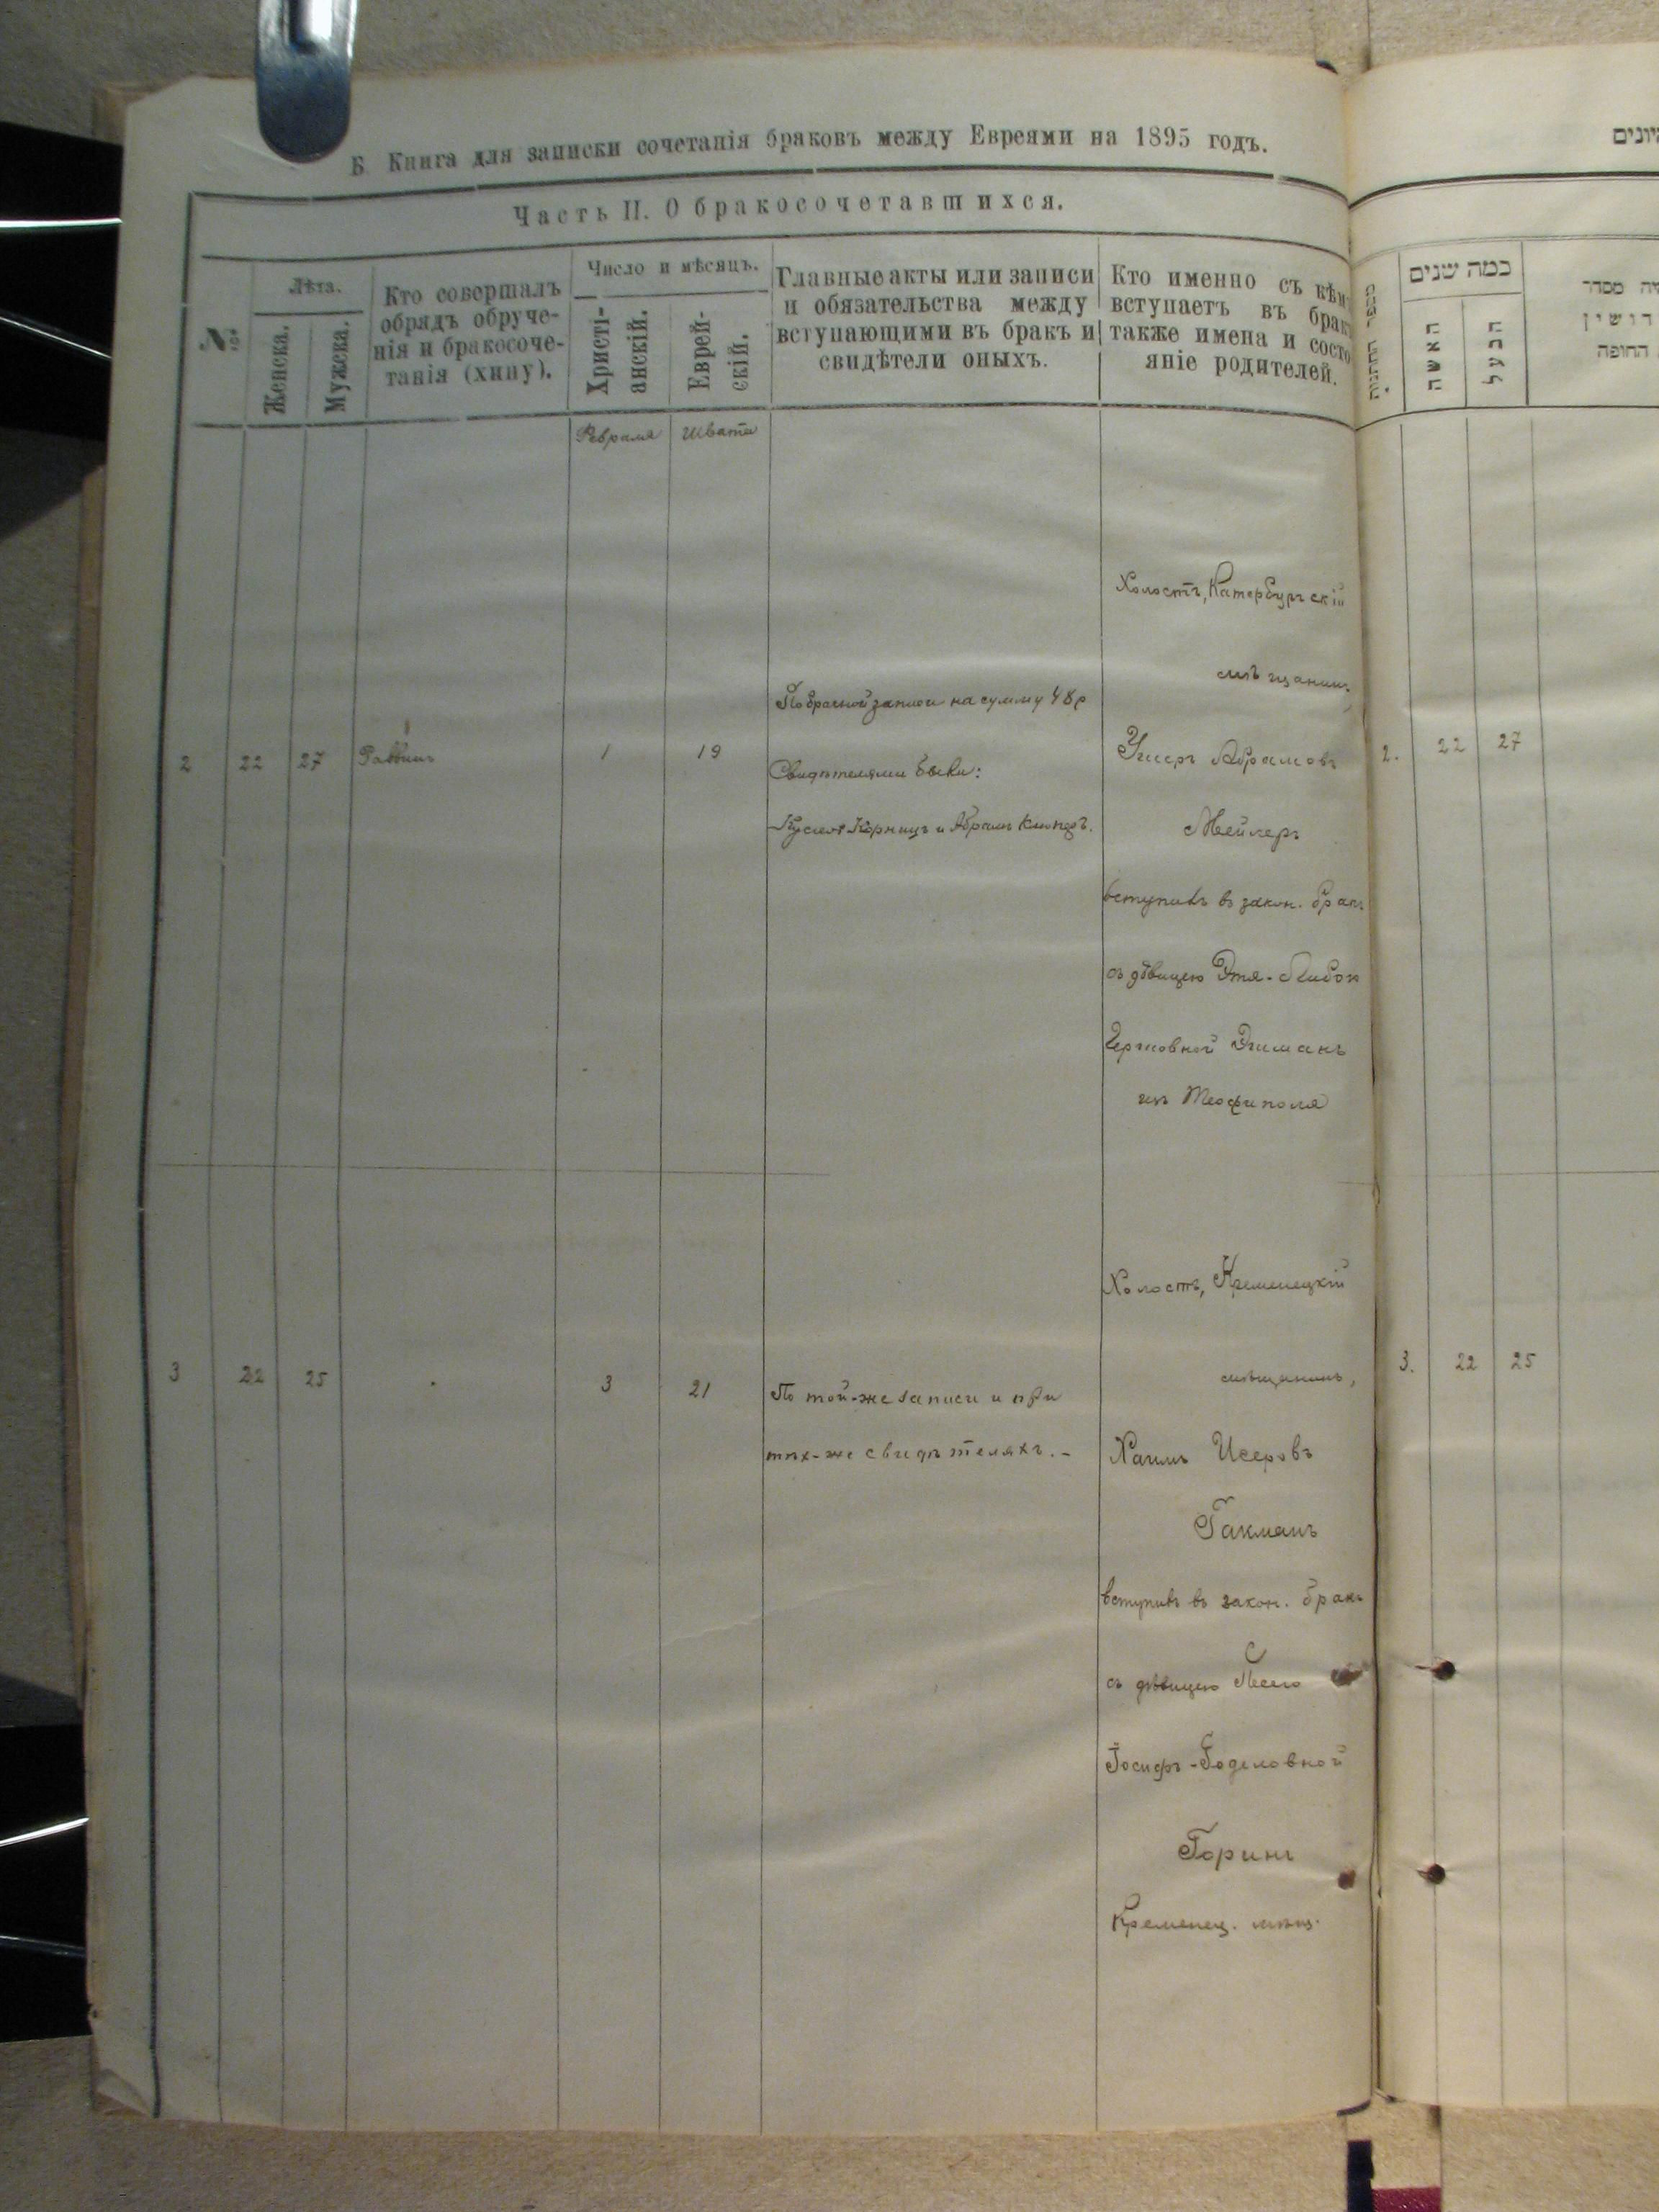 Б Книга для записки сочетанія браковъ между Евреями на 1895 годъ.
Часть II. О бракосочетавшихся.
№
Лѣта.
Женска.
Мужска.
Кто совершалъ
обрядъ обруче-
нія и бракосоче-
танія (хипу).
Число и мѣсяцъ.
Христі-
анскій.
Еврей-
скій.
Главные акты или записи
и обязательства между
вступающими въ бракъ и
свидѣтели оныхъ.
Кто именно съ кѣмъ
вступаетъ въ бракъ
также имена и состо
яніе родителей.
Февраля Швата
Холостъ, Катербургскій
мѣщанинъ
По брачной записи на сумму 48 р
2 22 27 Раввинъ 1 19
Свидѣтелями были:
и Абрамъ
Абрамовъ
Мейлеръ
вступилъ въ закон. бракъ
съ дѣвицею Этя-
изъ Теофиполя
Холостъ, Кременецкій
мѣщанинъ,
3 22 25 3 21
По той-же записи и при
тѣх-же свидѣтеляхъ. -
Хаимъ Исеровъ
Гакманъ
вступилъ въ закон. бракъ
съ дѣвицею Песею
Іосифъ-Годеловной
Горинъ
Кременец. мѣщ.
יונים
מספר החתונות
כמה שנים
האשה
הבעל
יה מסדר
דושין
החופה
2. 22 27
3. 22 25